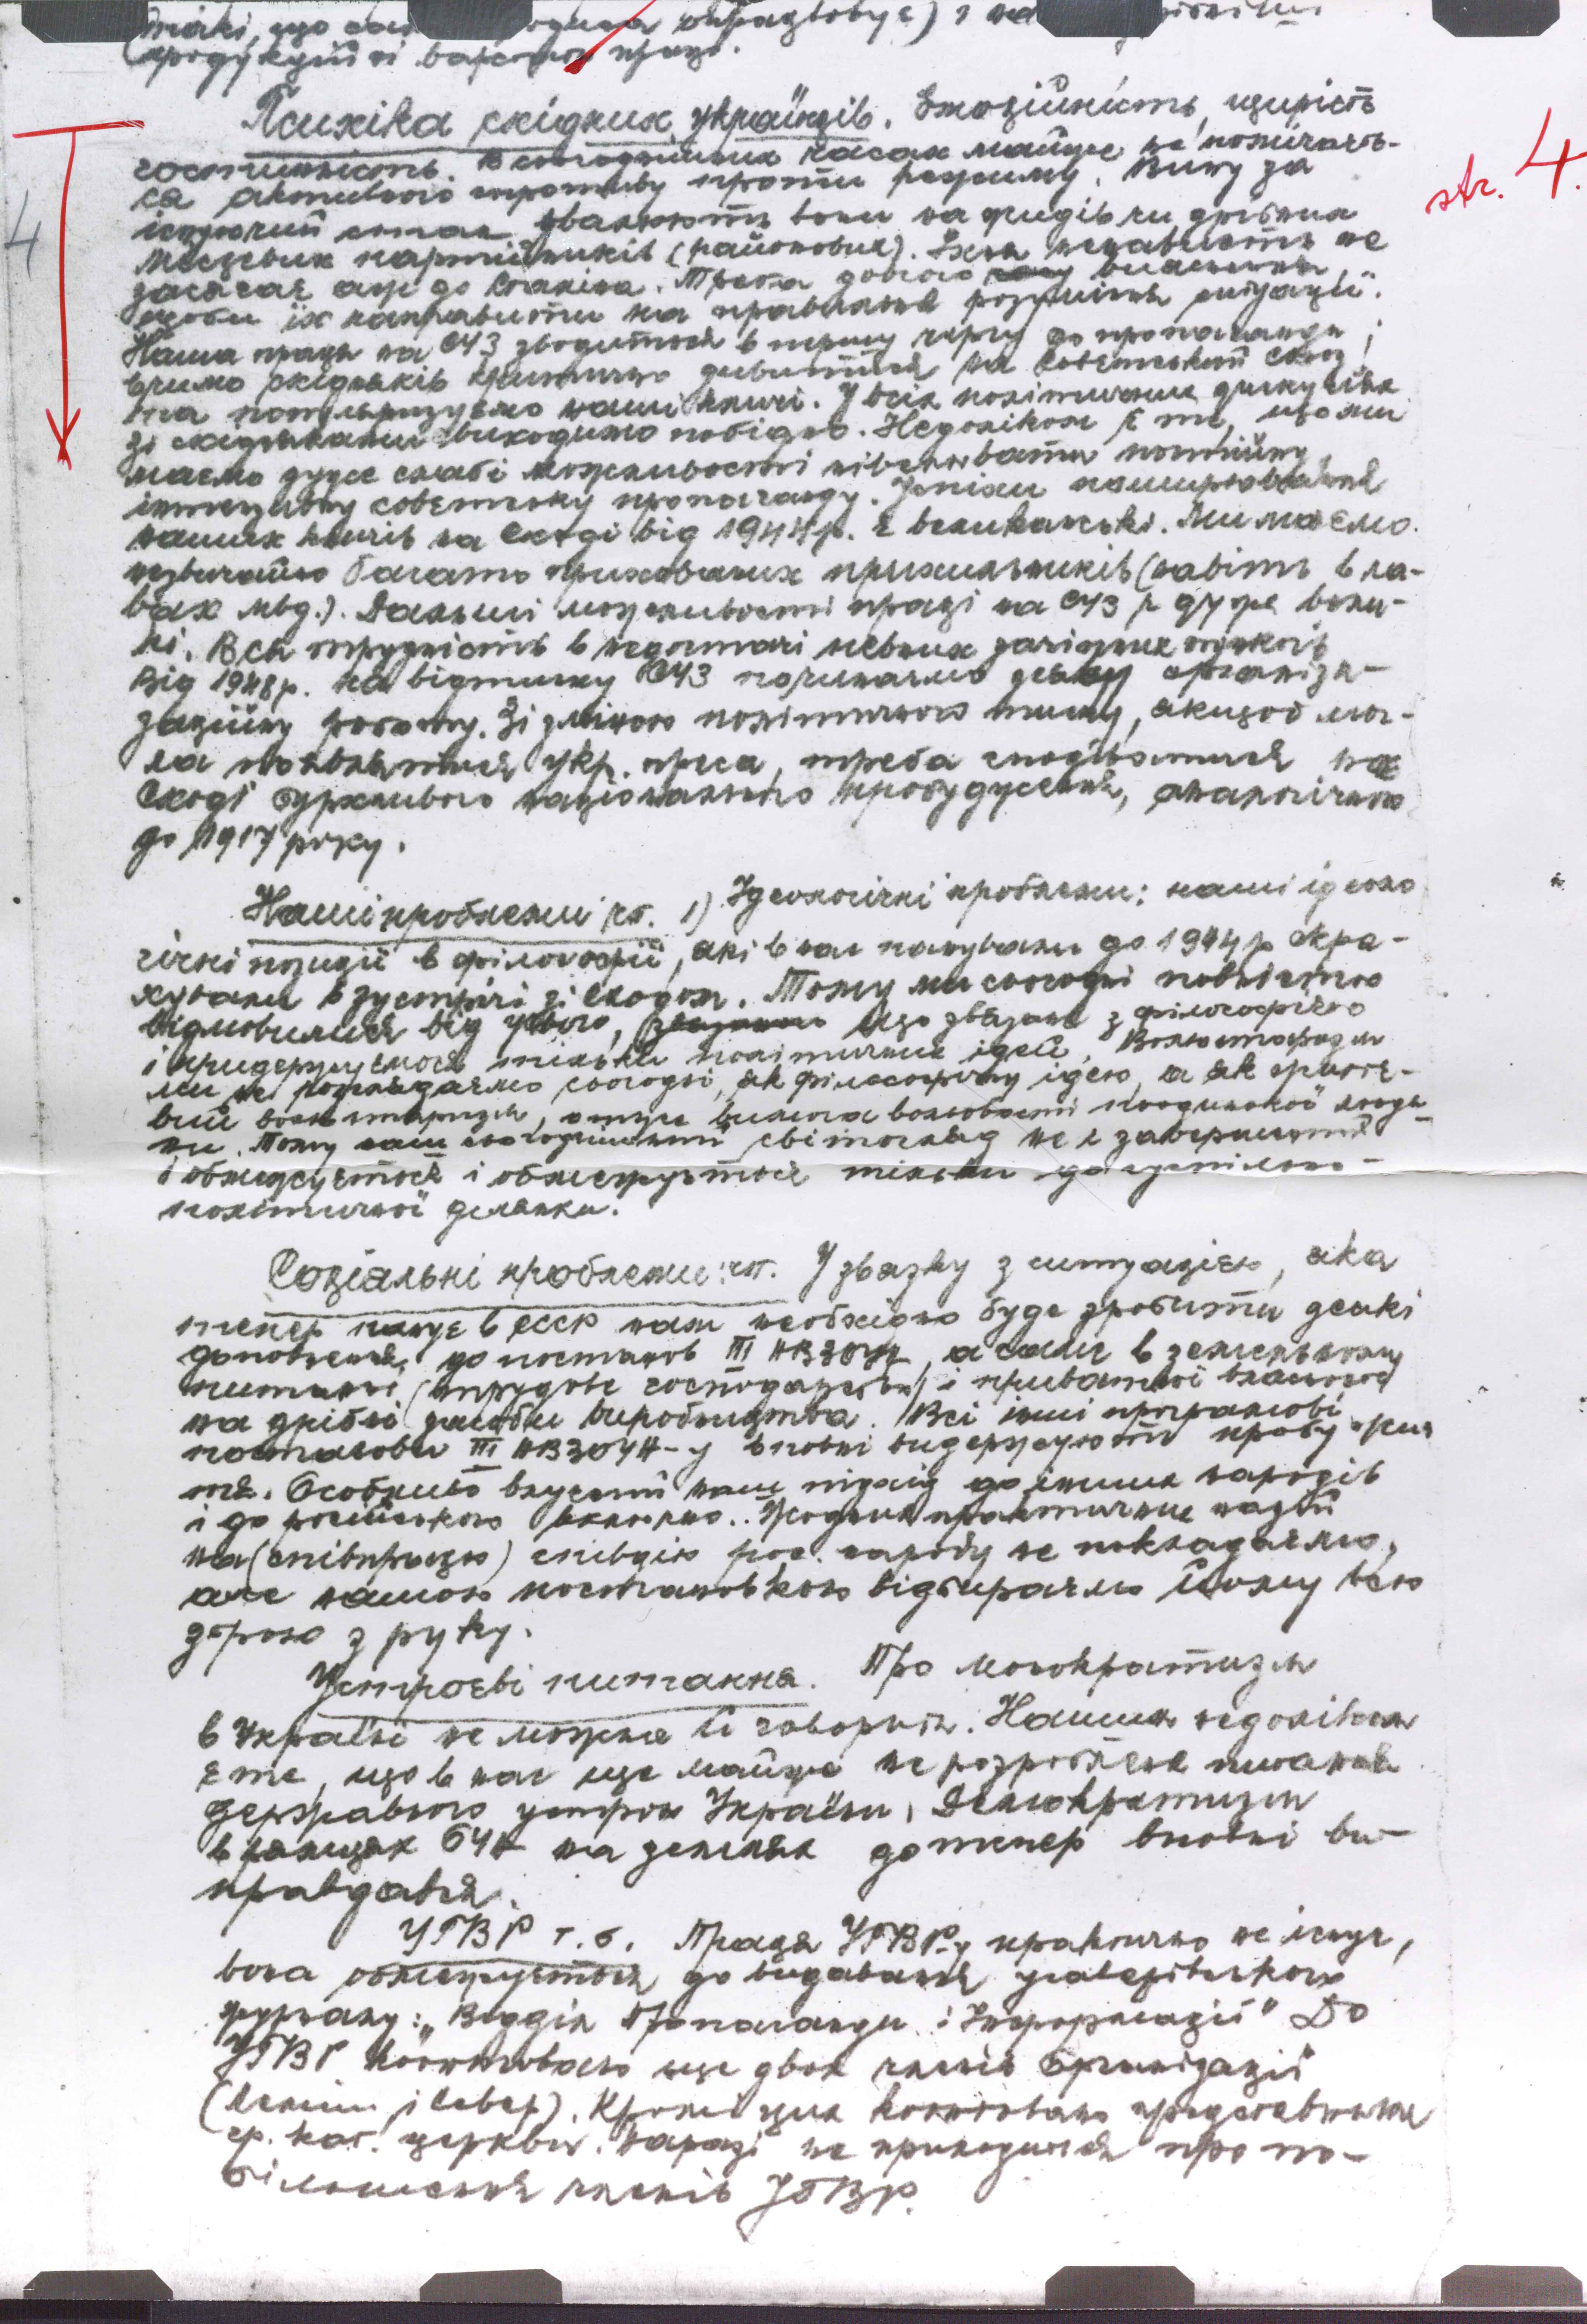 продукційні варстати праці.
Психіка східних українців. Емоційність, щирість
гостинність. В сьогоднішних часах майже не помічаєть-
ся активного спротиву проти режиму. Вину за
існуючий стан звалюють вони на жидів чи дрібних
місцевих партійників (районових). Їхня ненависть не
засягає аж до Сталіна. Треба довгого вияснення,
щоби їх направити на правильне розуміння ситуації.
Наша праця на СУЗ зводиться в першу чергу до пропаганди;
вчимо східняків критично дивитися на Совєтський Союз,
та популяризуємо наші кличі. У всіх політичних дискусіях
зі східняками виходимо побідно. Недоліком є те, що ми
маємо дуже слабі можливості нівелювати постійну,
інтензивну совєтську пропаганду. Успіхи поширювання
наших кличів на Сході від 1944 р. є великанські. Ми маємо
незвичайно багато прихованих прихильників (навіть в ла-
вах мвд.). Дальші можливості праці на СУЗ є дуже вели-
кі. Вся трудність в недостачі певних зачіпних точок
Від 1948 р. на відтинку СУЗ починаємо деяку організа-
заційну роботу. Зі зміною політичного тиску, якщоб мог-
ла появлятися укр. преса, треба сподіватися на
Сході бурхливого національного пробудження, аналогічного
до 1917 року.
Наші проблеми кт. 1) Ідеологічні проблеми: наші ідеоло
гічні позиції в філософії, які в нас панували до 1944 р скра-
хували в зустрічі зі Сходом. Тому ми сьогодні повністю
відмовилися від усього, що звязане з філософією
і придержуємося тільки політичних ідей. Волюнтаризм
ми не розглядаємо сьогодні, як філософічну ідею, а як життє-
вий волюнтаризм, отже вимога вольовості поодинокої люди-
ни. Тому наш сьогоднішний світогляд не є завершений
і обмежується тільки до суспільно-
політичної ділянки.
Соціяльні проблеми: кт. У звязку з ситуацією, яка
тепер панує в СССР нам необхідно буде зробити деякі
доповнення до постанов III НВЗОУН, а саме в земельному
питанні (трудове господарство) і приватної власности
на дрібні засоби виробництва. Всі інші програмові
постанови III НВЗОУН-у вповні видержують пробу жит
тя. Особливо влучний наш підхід до інших народів
і до російського включно. Жодних практичних надій
на (співпрацю) співдію рос. народу не покладаємо,
але нашою постановкою відбираємо йому всю
зброю з руку.
Устроєві питання. Про монократизм
в Україні не можна й говорити. Нашим недоліком
є те, що в нас ще майже не розроблене питання
державного устрою України. Демократизм
в рямцях ОУН на землях дотепер вповні ви-
правдався.
УГВР т. б. Праця УГВР-у практично не існує,
вона обмежується до видавання
журналу: „Відділ Пропаганди і Інформації" До
УГВР кооптовано ще двох членів Організації
(Ленін і Север). Крім цих кооптовано представника
гр. кат. церкви. Наразі не приходится про по-
більшення членів УГВР.
4
str. 4.